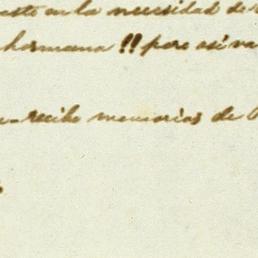 esto en la necesidad de
hermana !! pero así va
recibe memorias de